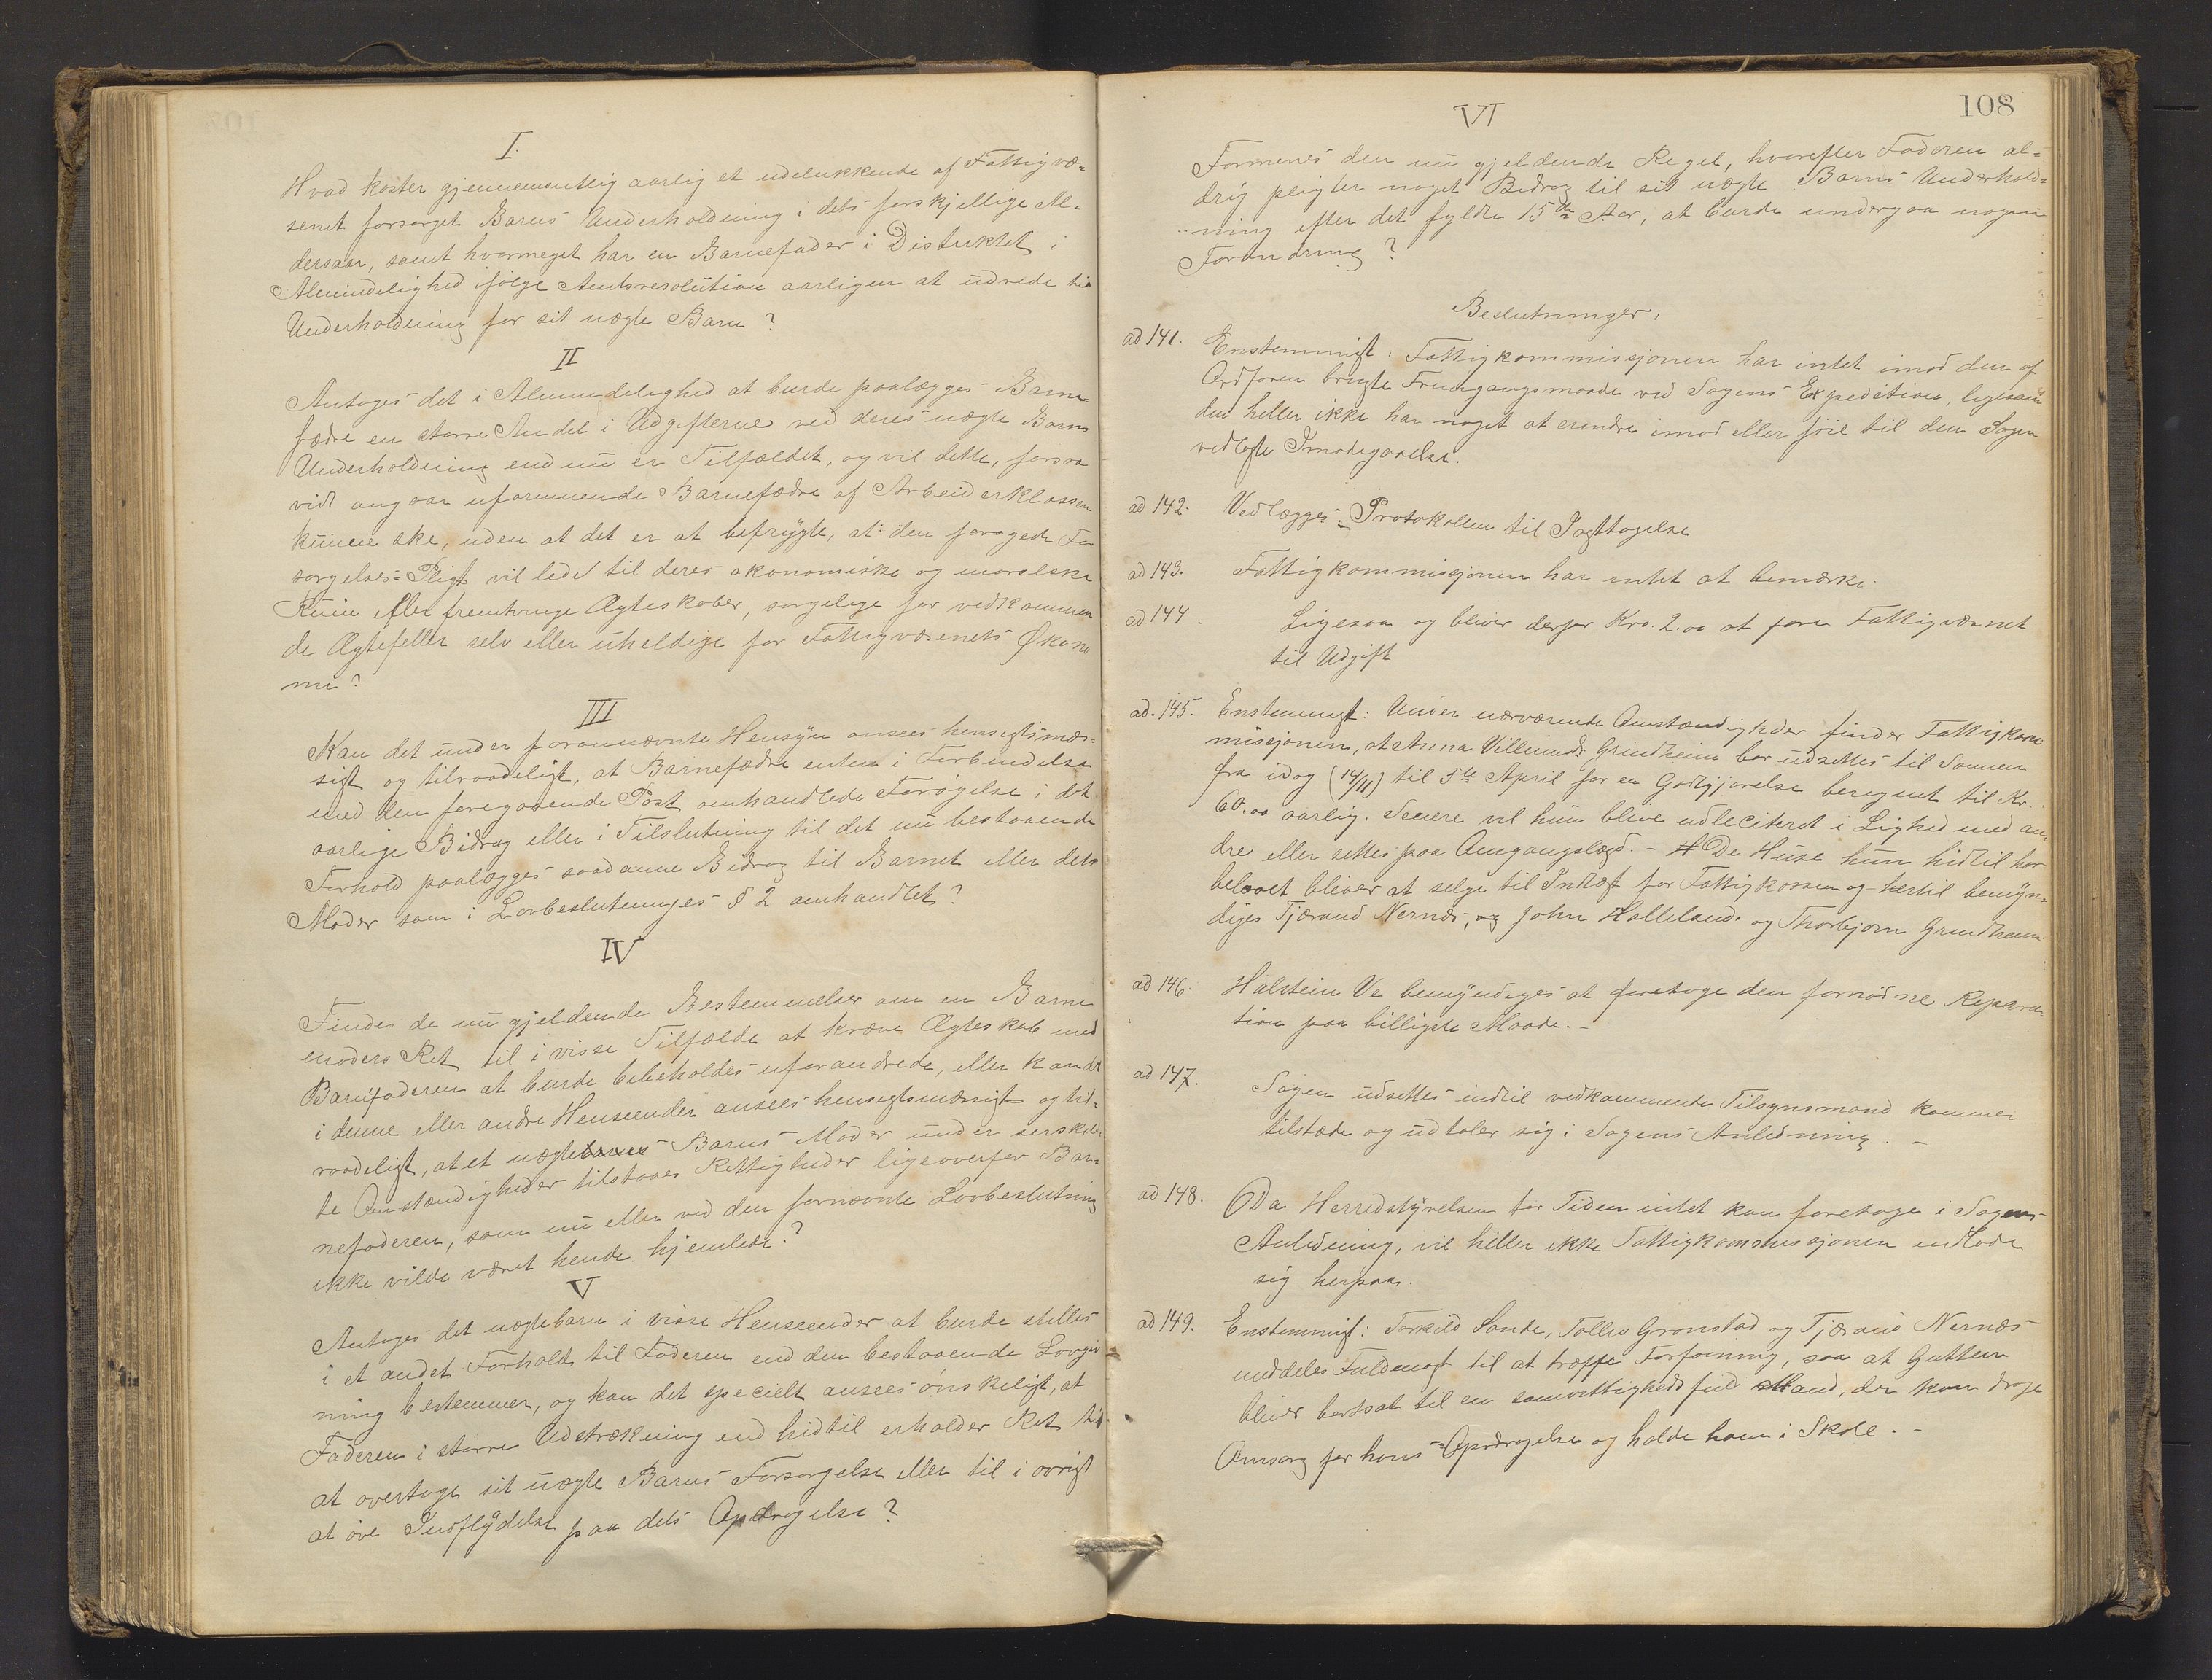 I.
Hvad koster gjennemsnitlig aarlig et udelukkende af Fattigvæ-
senet forsørget Barns Underholdning i dets forskjellige Al-
dersaar, samt hvormeget har en Barnefader i Distriktet i
Almindelighed ifølge Amtsresolution aarligen at udrede til
Underholdning for sit uægte Barn?
II
Antages det i Almindelighed at burde paalægges Barne
fædre en større Andel i Udgifterne ved deres uægte Barns
Underholdning end nu er Tilfældet, og vil dette, forsaa
vidt angaar uformuende Barnefædre af Arbeiderklassen
kunne ske, uden at det er at befrygte, at den forøgede For
sørgelses-Pligt vil lede til deres økonomiske og moralske
Ruin eller fremtvinge Ægteskaber, sørgelige for vedkommen
de Ægtefeller selv eller uheldige for Fattigvæsenets Økono
mi?
III
Kan det under forannævnte Hensyn ansees hensigtsmæs-
sigt og tilraadeligt, at Barnefædre enten i Forbindelse
med den foregaaende Post omhandlede Forøgelse i det
aarlige Bidrag eller i Tilslutning til det nu bestaaende
Forhold paalægges saadanne Bidrag til Barnet eller dets
Moder som i Lovbeslutninges § 2 omhandlet?
IV
Findes de nu gjeldende Bestemmelser om en Barne
moders Ret til i visse Tilfælde at kræve Ægteskab med
Barnefaderen at burde bibeholdes uforandrede, eller kan det
i denne eller andre Henseender ansees hensigtsmæssigt og til-
raadeligt, at et uægte Barns Moder under serskil-
te Omstændigheder tilstaaes Rettigheder ligeoverfor Bar-
nefaderen, som nu eller ved den fornævnte Lovbeslutning
ikke vilde været hende hjemlede?
V
Antages det uægtebarn i visse Henseender at burde stilles
i et andet Forhold til Faderen end den bestaaende Lovgiv
ning bestemmer, og kan det specielt ansees ønskeligt, at
Faderen i større Udstrækning end hidtil erholder Ret til
at overtage sit uægte Barns Forsørgelse eller til i øvrigt
at øve Indflydelse paa dets Opdragelse?
108
VI
Formenes den nu gjeldende Regel, hvorefter Faderen al-
drig pligter noget Bidrag til sit uægte Barns Underhold-
ning efter det fyldte 15de Aar, at burde undergaa nogen
Forandring?
Beslutninger:
ad 141. Enstemmigt: Fattigkommissjonen har intet imod den af
Ordføren brugte Fremgangsmaade ved Sagens Expedition, ligesom
den heller ikke har noget at erindre imod eller föie til den Sagen
vedlagte Imødegaaelse.
ad 142. Vedlægges Protokollen til Iagttagelse
ad 143. Fattigkommissjonen har intet at bemærke.
ad 144. Ligesaa og bliver derfor Kro. 2.00 at føre Fattigvæsenet
til Udgift
ad. 145. Enstemmigt: Under nærværende Omstændigheder finder Fattigkom
missjonen, at Anna Villumsdr Grindheim bør udsettes til Sønnen
fra idag (14/11) til 5te April for en Godtgjørelse beregnet til Kr.
60.00 aarlig. Senere vil hun blive udliciteret i Lighed med an-
dre eller settes paa Omgangslægd. - De Huse hun hidtil har
beboet bliver at selge til Indtægt for Fattigkassen og hertil bemyn-
diges Tjærand Nernæs, John Halleland. og Thorbjørn Grindheim
ad 146. Halstein Ve bemyndiges at foretage den fornødne Repara
tion paa billigste Maade. -
ad 147. Sagen udsettes indtil vedkommende Tilsynsmand kommer
tilstæde og udtaler sig i Sagens Anledning. -
ad 148. Da Herredstyrelsen for Tiden intet kan foretage i Sagens
Anledning, vil heller ikke Fattigkommissjonen indlade
sig herpaa.
ad 149. Enstemmigt: Torkild Sande, Tollev Grønstad og Tjærand Nernæs
meddeles Fuldmagt til at træffe Forføining, saa at Gutten
bliver bortsat til en samvittighedsfuld Mand, der kan drage
Omsorg for hans Opdragelse og holde ham i Skole. -